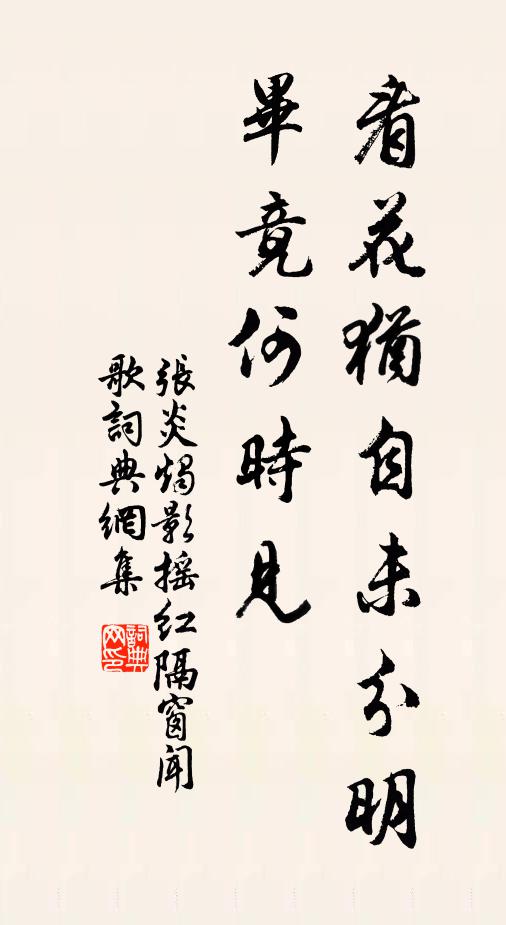 看花猶自未分明
畢竟何時見
張炎燭影搖紅隔窗聞
歌詞典網集
詞典網印